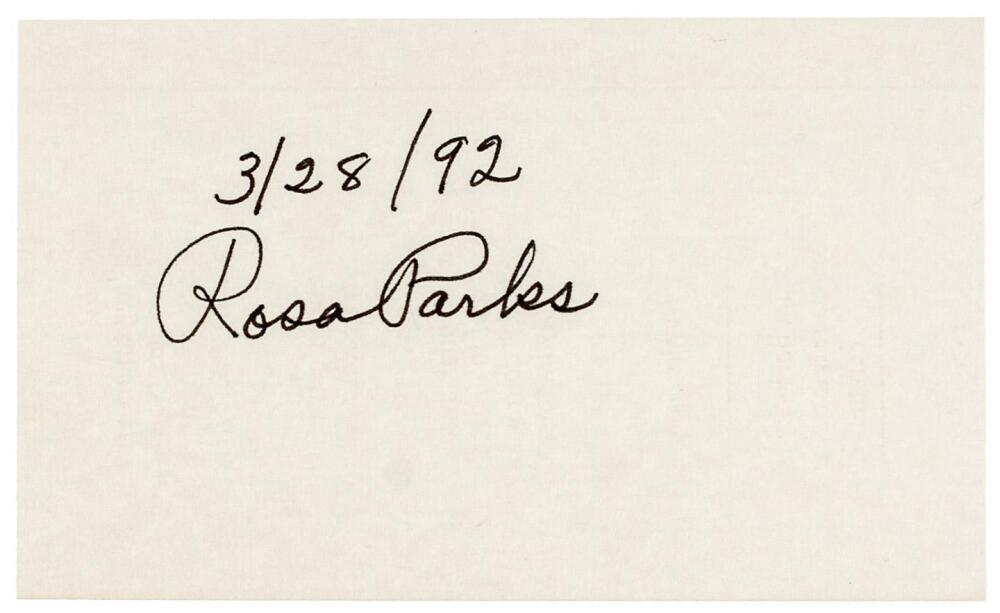 3/28/92
Rosa Parks